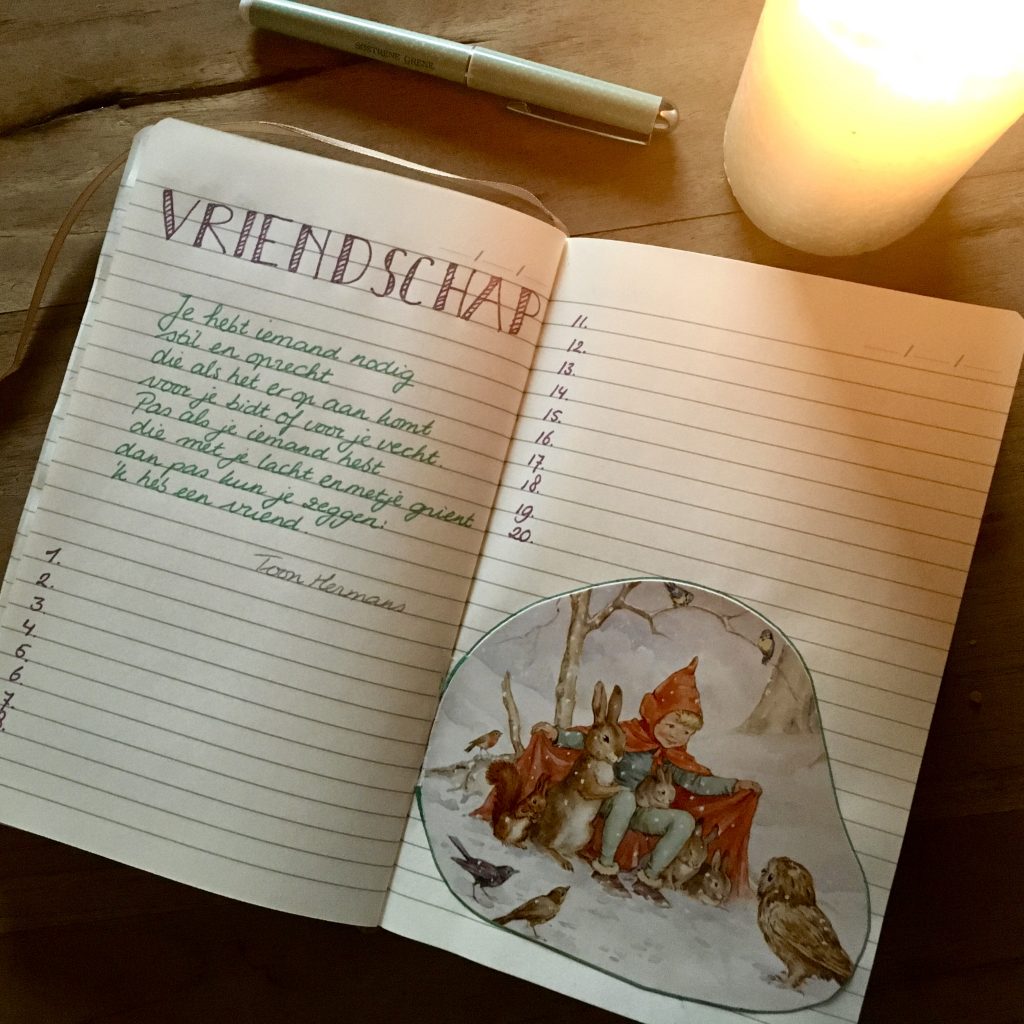 SØSTRENE GRENE
VRIENDSCHAP
Je hebt iemand nodig
stil en oprecht
die als het er op aan komt
voor je bidt of voor je vecht.
Pas als je iemand hebt
die met je lacht en met je grient
dan pas kun je zeggen:
'k heb een vriend.
Toon Hermans
1.
2.
3.
4.
5.
6
7.
11.
12.
13.
14.
15.
16.
17.
18.
19.
20.